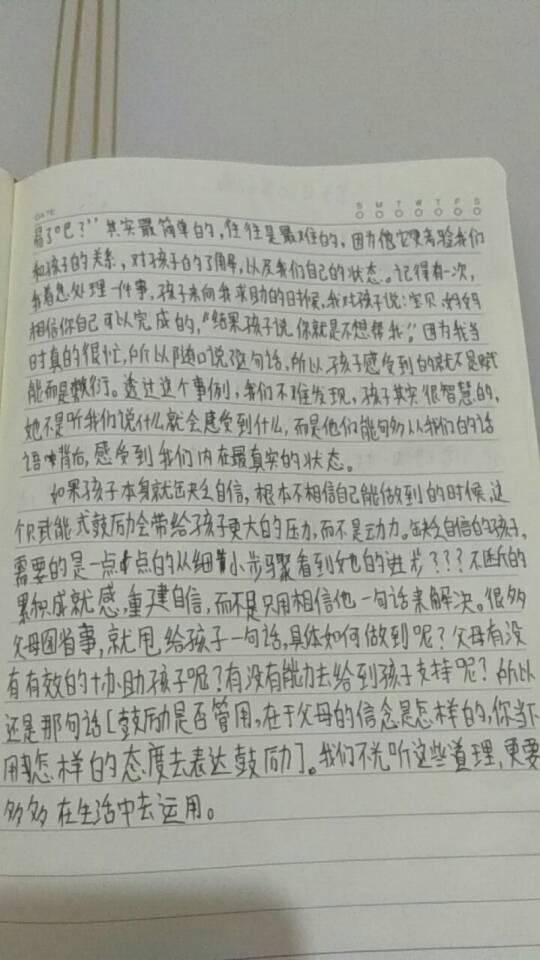 DATE
S M T W T F S
易了吧？”其实最简单的，往往是最难的，因为他它更考验我们
和孩子的关系，对孩子的了解，以及我们自己的状态。记得有一次，
我着急处理一件事，孩子来向我求助的时候，我对孩子说：宝贝妈妈
相信你自己可以完成的，“结果孩子说你就是不想帮我”，因为我当
时真的很忙，所以随口说了这句话，所以孩子感受到的就不是赋
能而是敷衍。透过这个事例，我们不难发现，孩子其实很智慧的，
她不是听我们说什么就会感受到什么，而是他们能够从我们的话
语背后，感受到我们内在最真实的状态。
如果孩子本身就缺乏自信，根本不相信自己能做到的时候，这
个赋能式鼓励会带给孩子更大的压力，而不是动力。缺乏自信的孩子，
需要的是一点点的从细小步骤看到她的进步？？？不断的
累积成就感，重建自信，而不是只用相信他一句话来解决。很多
父母图省事，就甩给孩子一句话，具体如何做到呢？父母有没
有有效的协助孩子呢？有没有能力去给到孩子支持呢？所以
还是那句话［鼓励是否管用，在于父母的信念是怎样的，你当下
用怎样的态度去表达鼓励］。我们不光听这些道理，更要
多多在生活中去运用。